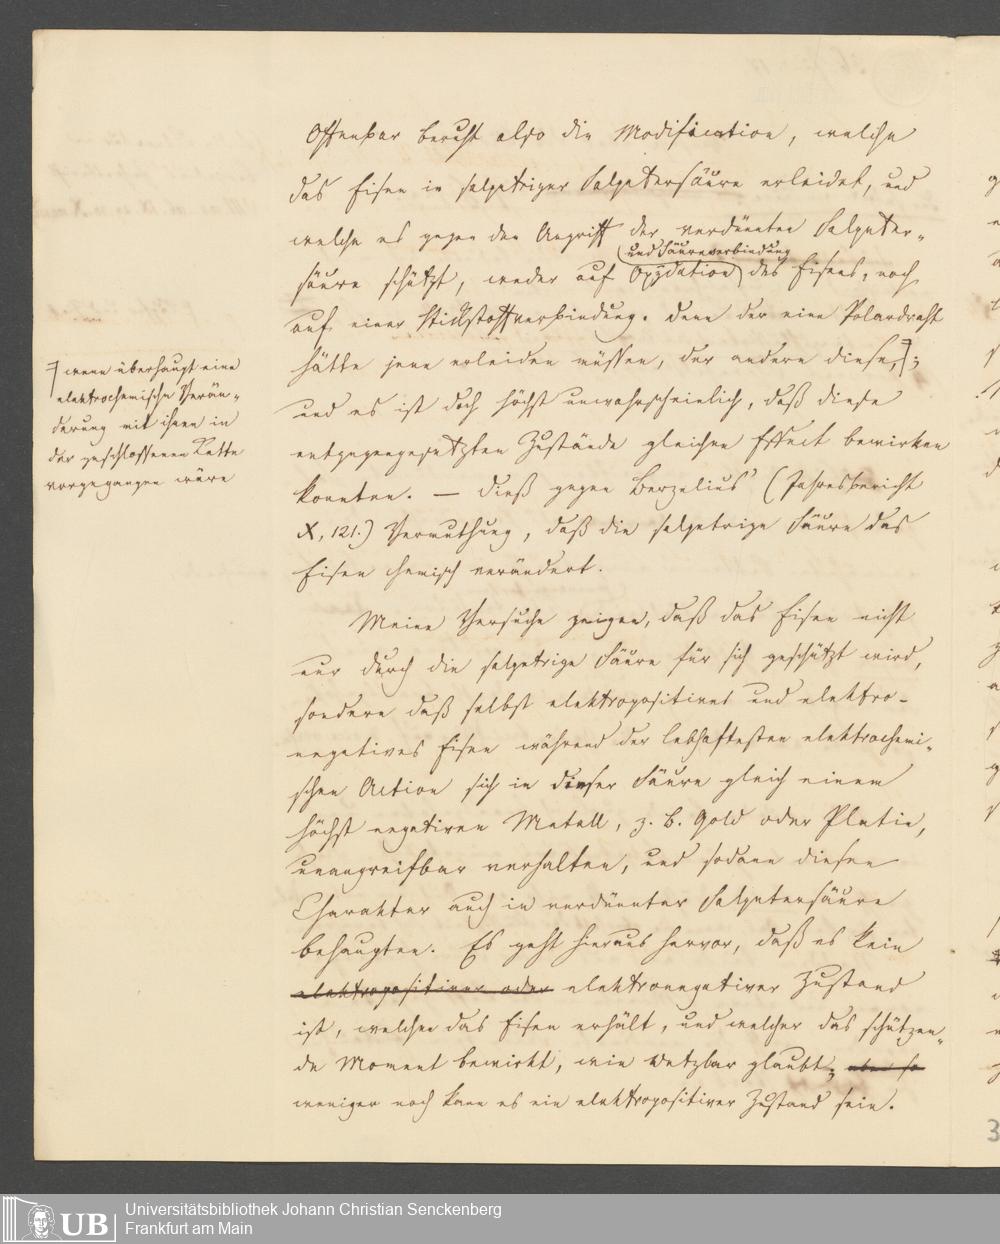 Offenbar beruht also die Modification, welche
das Eisen in salpetriger Salpetersäure erleidet, und
welche es gegen den Angriff der verdünnten Salpeter-
und Säureverbindung
säure schützt, weder auf Oxydation des Eisens, noch
auf einer Stickstoffverbindung. Denn der eine Polardraht
hätte jene erleiden müssen, der andere diese,;
und es ist doch höchst unwahrscheinlich, daß diese
entgegengesetzten Zustände gleichen Effect bewirken
konnten. — Dieß gegen Berzelius' (Jahresbericht
X, 121.) Vermuthung, daß die salpetrige Säure das
Eisen chemisch verändert.
wenn überhaupt eine
elektrochemische Verän-
derung mit ihnen in
der geschlossenen Kette
vorgegangen wäre
Meine Versuche zeigen, daß das Eisen nicht
nur durch die salpetrige Säure für sich geschützt wird,
sondern daß selbst elektropositives und elektro-
negatives Eisen während der lebhaftesten elektrochemi-
schen Action sich in dieser Säure gleich einem
höchst negativen Metall, z. B. Gold oder Platin,
unangreifbar verhalten, und sodann diesen
Charakter auch in verdünnter Salpetersäure
behaupten. Es geht hieraus hervor, daß es kein
elektropositiver oder elektronegativer Zustand
ist, welchen das Eisen erhält, und welcher das schützen-
de Moment bewirkt, wie Wetzlar glaubt; aber so
weniger noch kann es ein elektropositiver Zustand sein.
3
UB
Universitätsbibliothek Johann Christian Senckenberg
Frankfurt am Main